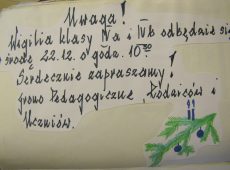 Uwaga!
Wigilia klasy IVa i IVb odbędzie się
w środę 22.12. o godz. 10³⁰
Serdecznie zapraszamy!
Grono Pedagogiczne, Rodziców i
Uczniów.